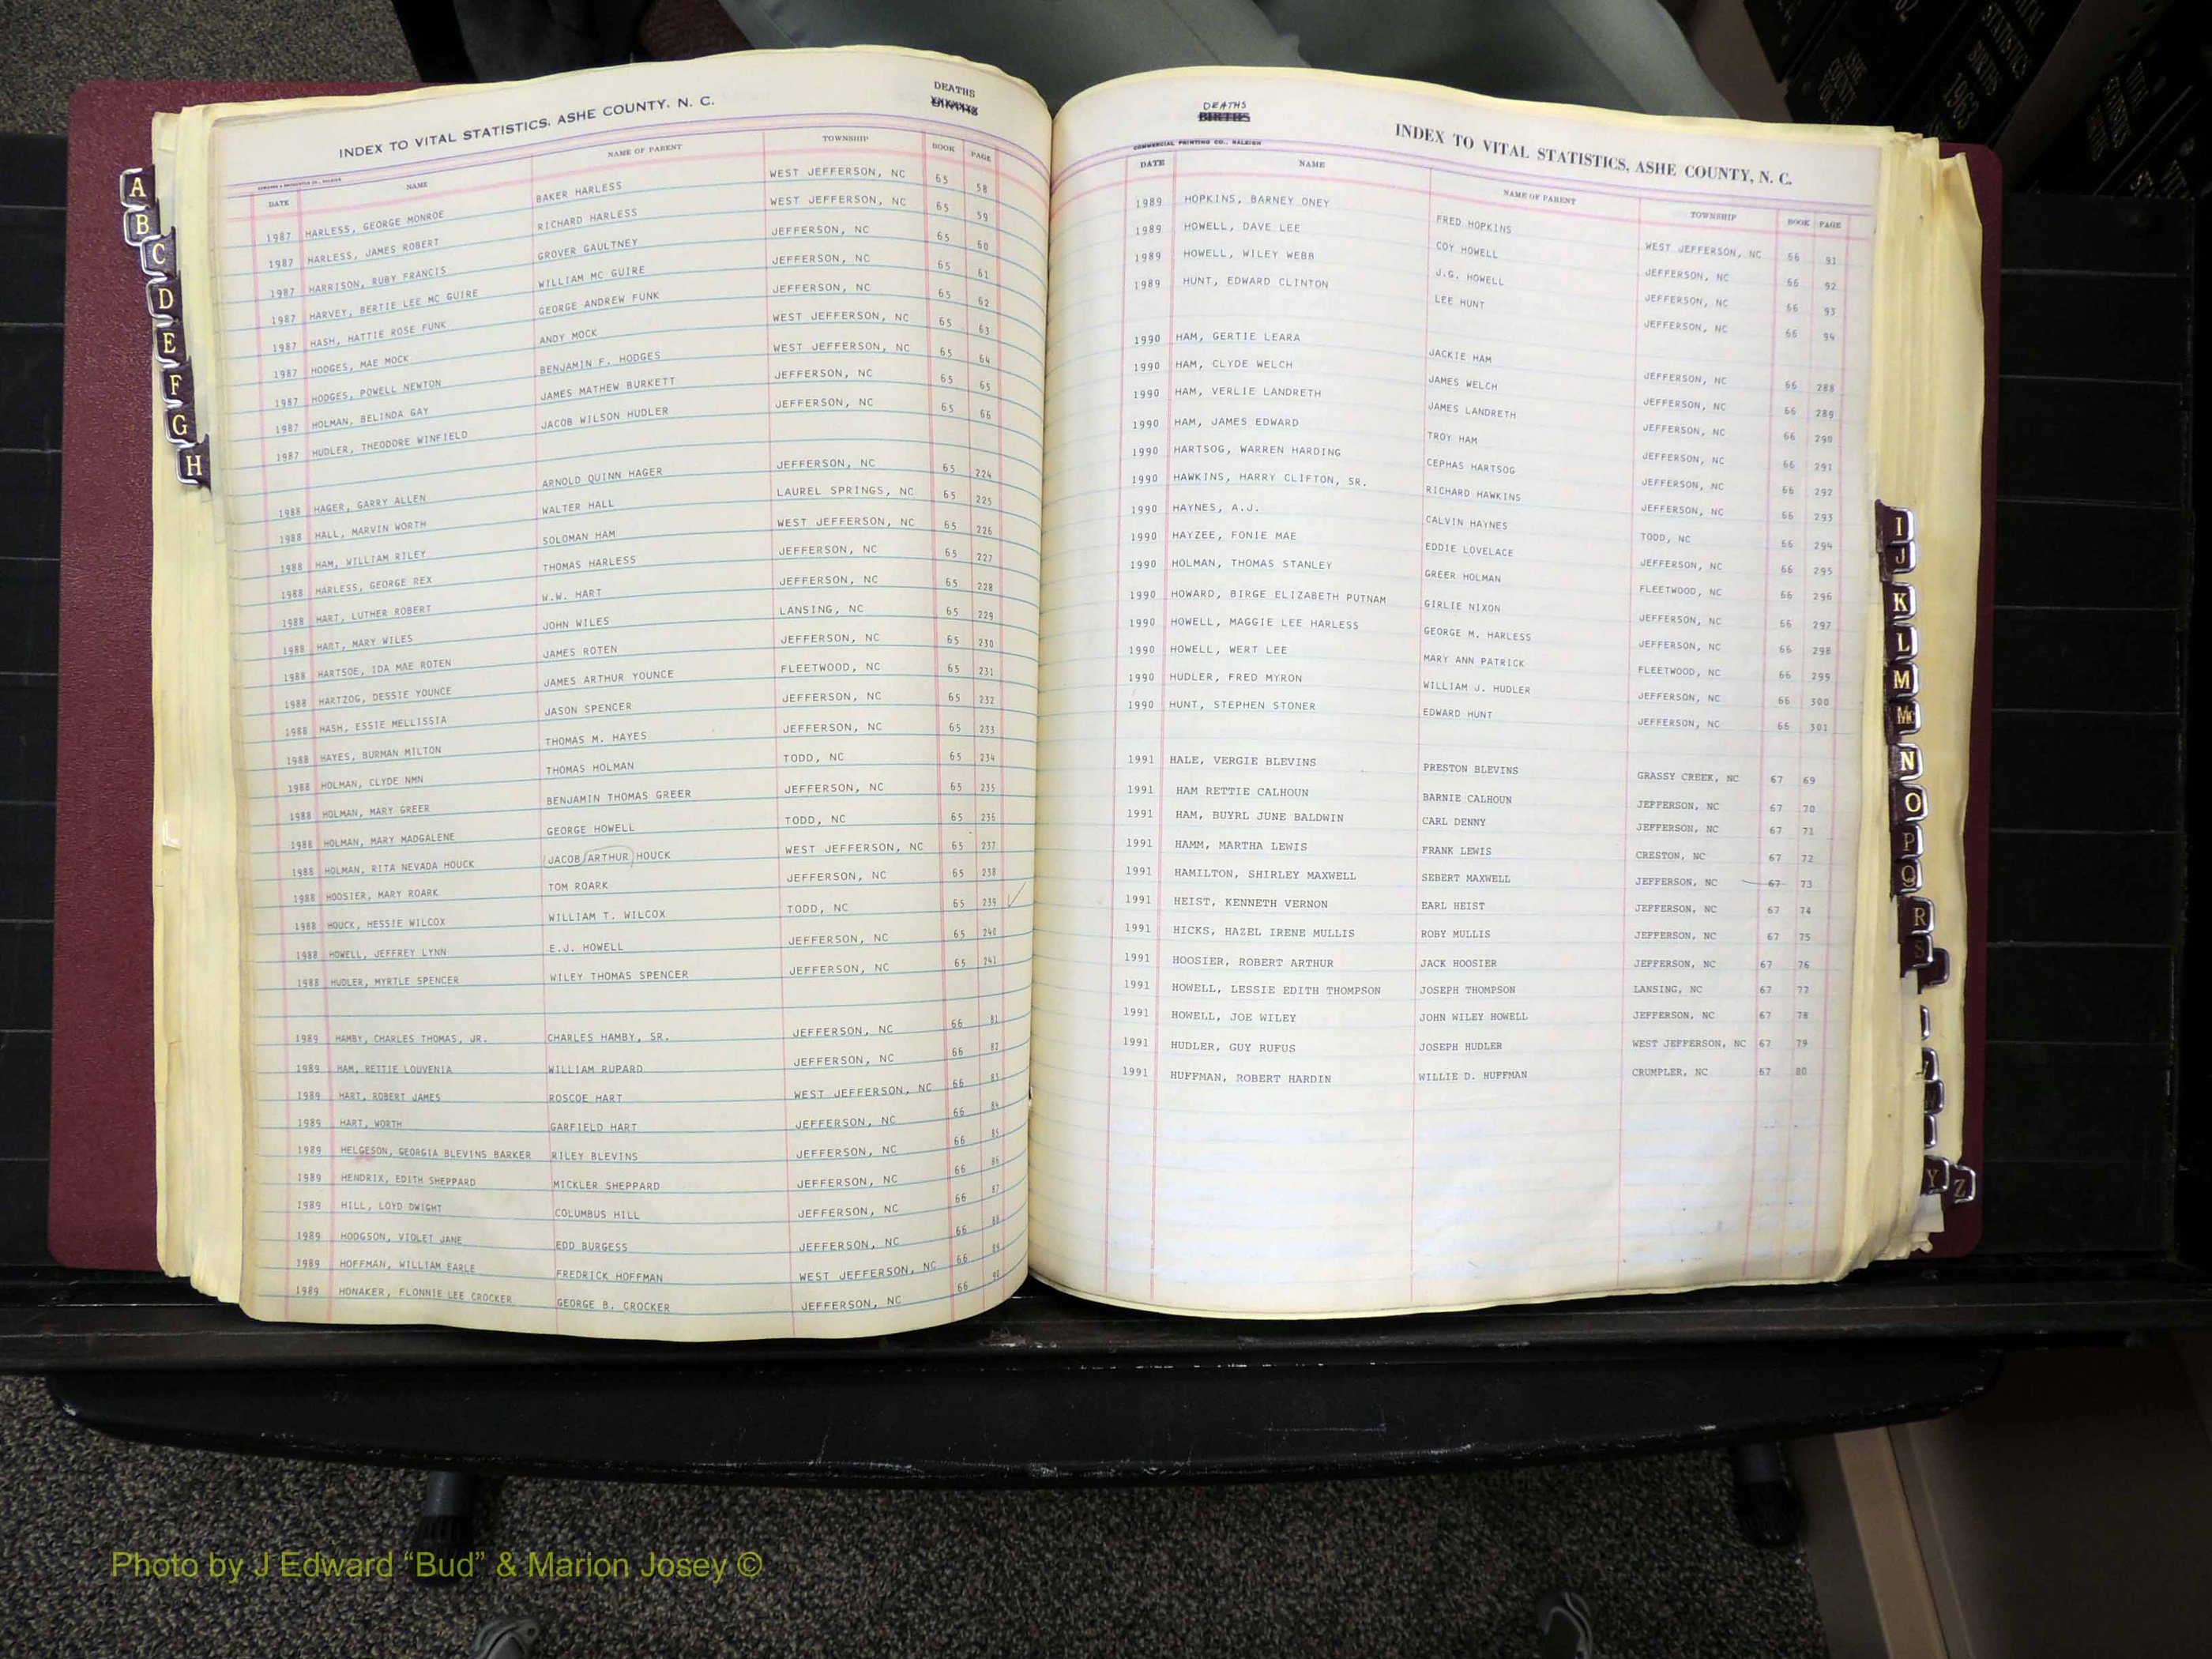 INDEX TO VITAL STATISTICS, ASHE COUNTY, N. C. DEATHS
DATE NAME NAME OF PARENT TOWNSHIP BOOK PAGE
1987 HARLESS, GEORGE MONROE BAKER HARLESS WEST JEFFERSON, NC 65 58
1987 HARLESS, JAMES ROBERT RICHARD HARLESS WEST JEFFERSON, NC 65 59
1987 HARRISON, RUBY FRANCIS GROVER GAULTNEY JEFFERSON, NC 65 60
1987 HARVEY, BERTIE LEE MC GUIRE WILLIAM MC GUIRE JEFFERSON, NC 65 61
1987 HASH, HATTIE ROSE FUNK GEORGE ANDREW FUNK JEFFERSON, NC 65 62
1987 HODGES, MAE MOCK ANDY MOCK WEST JEFFERSON, NC 65 63
1987 HODGES, POWELL NEWTON BENJAMIN F. HODGES WEST JEFFERSON, NC 65 64
1987 HOLMAN, BELINDA GAY JAMES MATHEW BURKETT JEFFERSON, NC 65 65
1987 HUDLER, THEODORE WINFIELD JACOB WILSON HUDLER JEFFERSON, NC 65 66
1988 HAGER, GARRY ALLEN ARNOLD QUINN HAGER JEFFERSON, NC 65 224
1988 HALL, MARVIN WORTH WALTER HALL LAUREL SPRINGS, NC 65 225
1988 HAM, WILLIAM RILEY SOLOMAN HAM WEST JEFFERSON, NC 65 226
1988 HARLESS, GEORGE REX THOMAS HARLESS JEFFERSON, NC 65 227
1988 HART, LUTHER ROBERT W.W. HART JEFFERSON, NC 65 228
1988 HART, MARY WILES JOHN WILES LANSING, NC 65 229
1988 HARTSOE, IDA MAE ROTEN JAMES ROTEN JEFFERSON, NC 65 230
1988 HARTZOG, DESSIE YOUNCE JAMES ARTHUR YOUNCE FLEETWOOD, NC 65 231
1988 HASH, ESSIE MELLISSIA JASON SPENCER JEFFERSON, NC 65 232
1988 HAYES, BURMAN MILTON THOMAS M. HAYES JEFFERSON, NC 65 233
1988 HOLMAN, CLYDE NMN THOMAS HOLMAN TODD, NC 65 234
1988 HOLMAN, MARY GREER BENJAMIN THOMAS GREER JEFFERSON, NC 65 235
1988 HOLMAN, MARY MADGALENE GEORGE HOWELL TODD, NC 65 236
1988 HOLMAN, RITA NEVADA HOUCK (JACOB/ARTHUR) HOUCK WEST JEFFERSON, NC 65 237
1988 HOOSIER, MARY ROARK TOM ROARK JEFFERSON, NC 65 238
1988 HOUCK, HESSIE WILCOX WILLIAM T. WILCOX TODD, NC 65 239 ✓
1988 HOWELL, JEFFREY LYNN E.J. HOWELL JEFFERSON, NC 65 240
1988 HUDLER, MYRTLE SPENCER WILEY THOMAS SPENCER JEFFERSON, NC 65 241
1989 HAMBY, CHARLES THOMAS, JR. CHARLES HAMBY, SR. JEFFERSON, NC 66 81
1989 HAM, RETTIE LOUVENIA WILLIAM RUPARD JEFFERSON, NC 66 82
1989 HART, ROBERT JAMES ROSCOE HART WEST JEFFERSON, NC 66 83
1989 HART, WORTH GARFIELD HART JEFFERSON, NC 66 84
1989 HELGESON, GEORGIA BLEVINS BARKER RILEY BLEVINS JEFFERSON, NC 66 85
1989 HENDRIX, EDITH SHEPPARD MICKLER SHEPPARD JEFFERSON, NC 66 86
1989 HILL, LOYD DWIGHT COLUMBUS HILL JEFFERSON, NC 66 87
1989 HODGSON, VIOLET JANE EDD BURGESS JEFFERSON, NC 66 88
1989 HOFFMAN, WILLIAM EARLE FREDRICK HOFFMAN WEST JEFFERSON, NC 66 89
1989 HONAKER, FLONNIE LEE CROCKER GEORGE B. CROCKER JEFFERSON, NC 66 90
DEATHS
BIRTHS
INDEX TO VITAL STATISTICS, ASHE COUNTY, N. C.
COMMERCIAL PRINTING CO., RALEIGH
DATE NAME NAME OF PARENT TOWNSHIP BOOK PAGE
1989 HOPKINS, BARNEY ONEY FRED HOPKINS WEST JEFFERSON, NC 66 91
1989 HOWELL, DAVE LEE COY HOWELL JEFFERSON, NC 66 92
1989 HOWELL, WILEY WEBB J.G. HOWELL JEFFERSON, NC 66 93
1989 HUNT, EDWARD CLINTON LEE HUNT JEFFERSON, NC 66 94
1990 HAM, GERTIE LEARA JACKIE HAM JEFFERSON, NC 66 288
1990 HAM, CLYDE WELCH JAMES WELCH JEFFERSON, NC 66 289
1990 HAM, VERLIE LANDRETH JAMES LANDRETH JEFFERSON, NC 66 290
1990 HAM, JAMES EDWARD TROY HAM JEFFERSON, NC 66 291
1990 HARTSOG, WARREN HARDING CEPHAS HARTSOG JEFFERSON, NC 66 292
1990 HAWKINS, HARRY CLIFTON, SR. RICHARD HAWKINS JEFFERSON, NC 66 293
1990 HAYNES, A.J. CALVIN HAYNES TODD, NC 66 294
1990 HAYZEE, FONIE MAE EDDIE LOVELACE JEFFERSON, NC 66 295
1990 HOLMAN, THOMAS STANLEY GREER HOLMAN FLEETWOOD, NC 66 296
1990 HOWARD, BIRGE ELIZABETH PUTNAM GIRLIE NIXON JEFFERSON, NC 66 297
1990 HOWELL, MAGGIE LEE HARLESS GEORGE M. HARLESS JEFFERSON, NC 66 298
1990 HOWELL, WERT LEE MARY ANN PATRICK FLEETWOOD, NC 66 299
1990 HUDLER, FRED MYRON WILLIAM J. HUDLER JEFFERSON, NC 66 300
1990 HUNT, STEPHEN STONER EDWARD HUNT JEFFERSON, NC 66 301
1991 HALE, VERGIE BLEVINS PRESTON BLEVINS GRASSY CREEK, NC 67 69
1991 HAM RETTIE CALHOUN BARNIE CALHOUN JEFFERSON, NC 67 70
1991 HAM, BUYRL JUNE BALDWIN CARL DENNY JEFFERSON, NC 67 71
1991 HAMM, MARTHA LEWIS FRANK LEWIS CRESTON, NC 67 72
1991 HAMILTON, SHIRLEY MAXWELL SEBERT MAXWELL JEFFERSON, NC 67 73
1991 HEIST, KENNETH VERNON EARL HEIST JEFFERSON, NC 67 74
1991 HICKS, HAZEL IRENE MULLIS ROBY MULLIS JEFFERSON, NC 67 75
1991 HOOSIER, ROBERT ARTHUR JACK HOOSIER JEFFERSON, NC 67 76
1991 HOWELL, LESSIE EDITH THOMPSON JOSEPH THOMPSON LANSING, NC 67 77
1991 HOWELL, JOE WILEY JOHN WILEY HOWELL JEFFERSON, NC 67 78
1991 HUDLER, GUY RUFUS JOSEPH HUDLER WEST JEFFERSON, NC 67 79
1991 HUFFMAN, ROBERT HARDIN WILLIE D. HUFFMAN CRUMPLER, NC 67 80
A
B
C
D
E
F
G
H
I
J
K
L
M
Mc
N
O
P
Q
R
S
Y
Z
ASHE COUNTY
STATISTICS
BIRTHS
1963
Photo by J Edward “Bud” & Marion Josey ©